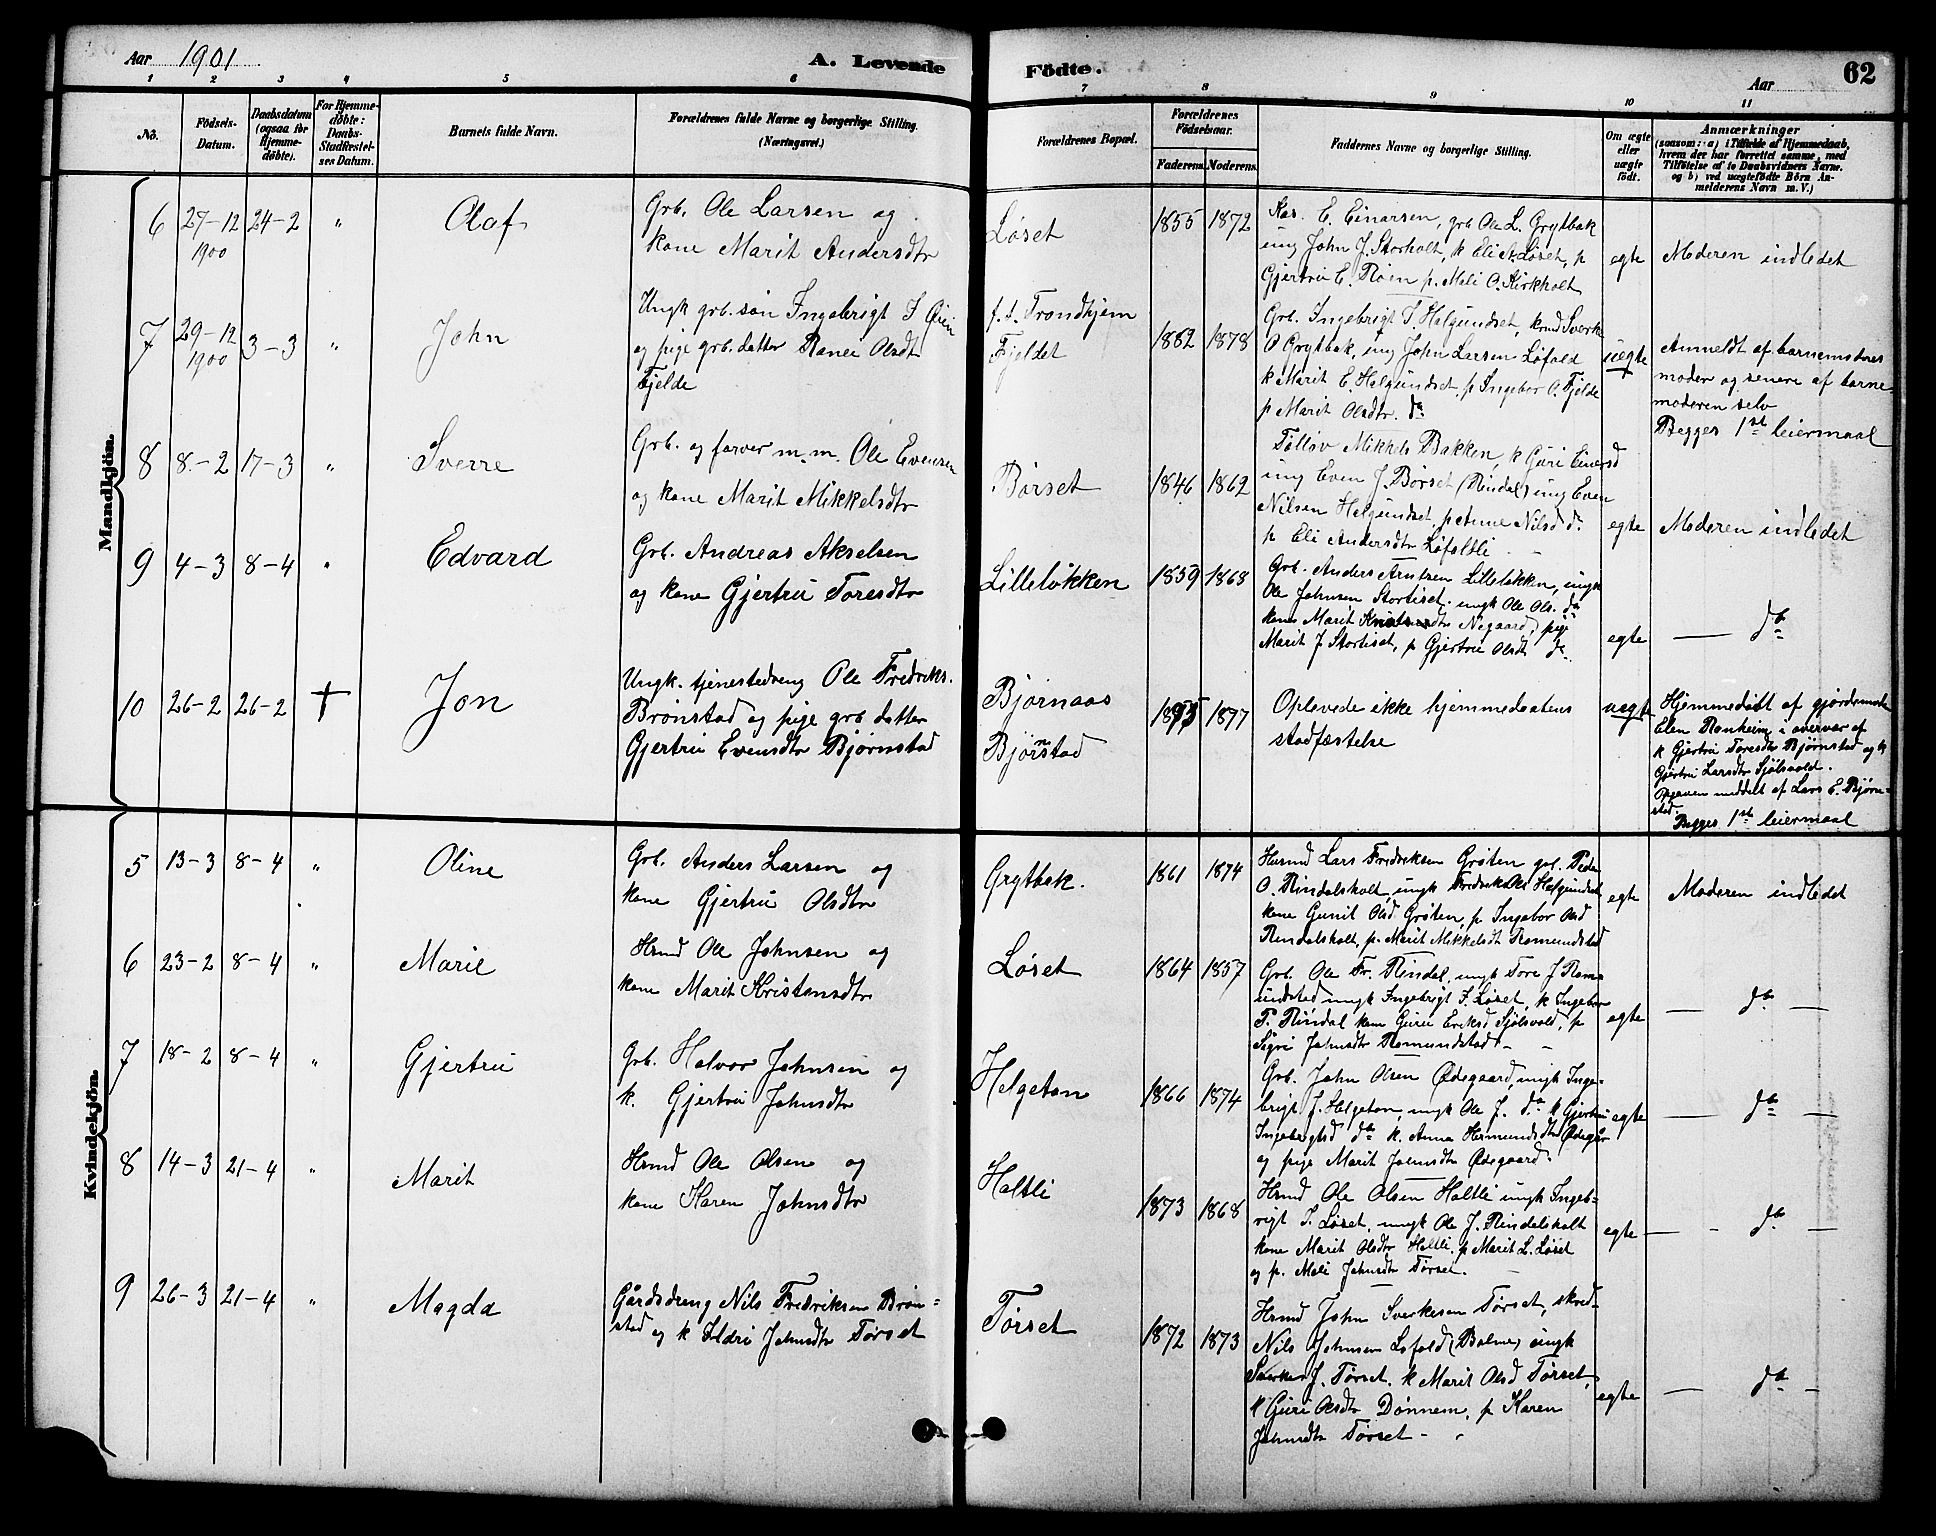 Aar 1901
A. Levende Födte.
Aar
62
1 2 3 4 5 6 7 8 9 10 11
No.
Födsels-Datum.
Daabsdatum (ogsaa for Hjemme-døbte).
For Hjemme-døbte: Daabs-Stadfæstel-ses Datum.
Barnets fulde Navn.
Forældrenes fulde Navne og borgerlige Stilling.
(Næringsvei.)
Forældrenes Bopæl.
Forældrenes Fødselsaar.
Faderens. Moderens.
Faddernes Navne og borgerlige Stilling.
Om ægte eller uægte født.
Anmærkninger
(saasom: a) i Tilfælde af Hjemmedaab,
hvem der har forrettet samme, med
Tilføielse af to Daabsvidners Navne.
og b) ved uægtefødte Börn An-
melderens Navn m. V.)
Mandkjön.
6 27-12 1900 24-2 " Olaf
Grb. Ole Larsen og
kone Marit Andersdtr
Løset 1855 1872
Kas. E. Einarsen, grb Ole L. Grytbak
ung John J. Storholt, k Eli A. Løset, p
Gjertru E. Moen p. Mali O. Kirkholt
egte
Moderen indledet
7 29-12 1900 3-3 " John
Ungk grb. søn Ingebrigt J Øien
og pige grb. datter Raner Olsdt
Fjelde
f.t. Trondhjem
Fjeldet
1882 1878
Grb. Ingebrigt T. Helgundset, krmd Sverke
O Grytbak, ung John Larsen Løfald
k Marit E. Helgundset, p Ingebor O. Fjelde
p Marit Olsdtr. do
uegte
Anmeldt af barnemoderes
moder og senere af barne
moderen selv
Begges 1ste leiermaal
8 8-2 17-3 " Sverre
Grb. og farver m.m. Ole Evensen
og kone Marit Mikkelsdtr
Børset 1846 1862
Tølløv Mikkels Bakken, k Guri Einersd
ung Even J. Børset (Rindal) ung Even
Nilsen Helgundset, p Anne Nilsd do
p Eli Andersdtr Løfaltli
egte
Moderen indledet
9 4-3 8-4 " Edvard
Grb. Andreas Akselsen
og kone Gjertru Toresdtr
Lilleløkken 1859 1868
Grb. Anders Arntsen Lilleløkken, ungk
Ole Johnsen Stortiset. ungk Ole Ols. do
kone Marit dtr Negaard, pige
Marit J Stortiset, p Gjertru Olsdt do
egte
— do
10 26-2 26-2 † Jon
Ungk. tjenestedreng Ole Fredriks.
Brønstad og pige grb datter
Gjertru Evensdtr Bjørnstad
Bjørnaas
Bjørnstad
1875 1877
Oplevede ikke hjemmedaabens
stadfæstelse
uegte
Hjemmedøbt af gjordemode
Elen Ronheim i overvær af
k Gjertru Toresdtr Bjørnstad og k
Gjertru Larsdtr Sjølsvold.
Opgaven meddelt af Lars E. Bjørn-
stad.
Begges 1ste leiermaal
Kvindekjön.
5 13-3 8-4 " Oline
Grb. Anders Larsen og
kone Gjertru Olsdtr
Grytbak. 1861 1874
Husmd Lars Fredriksen Grøten grb. Peder
O. Rindalsholt, ungk Fredrik Ols Helgundset
kone Gunil Olsd Grøten, p Ingebor Olsd
Rindalsholt, p. Marit Mikkelsdt Romundstad
egte
Moderen indledet
6 23-2 8-4 " Marie
Hrmd Ole Johnsen og
kone Marit Kristensdtr
Løset 1864 1857
Grb. Ole Fr. Rindal, ungk Tore J Rom-
undstad ungk Ingebrigt J. Løset, k Ingebor
T. Rindal kone Guru Eriksd Sjølsvold, p
Sigri Johnsdtr Romundstad
egte
— do —
7 18-2 8-4 " Gjertru
Grb. Halvor Johnsen og
k. Gjertru Johnsdtr
Helgeton 1866 1874
Grb. John Olsen Ødegaard, ungk Inge-
brigt J. Helgeton, ungk Ole J. do k Gjertru
Ingebrigtsd do k. Anna Hermundsdtr Ødegår
og pige Marit Johnsdtr Ødegaard.
egte
— do —
8 14-3 21-4 " Marit
Hrmd Ole Olsen og
kone Karen Johnsdtr
Holtli 1873 1868
Hrmd Ole Olsen Holtli ungk Ingeb-
rigt J. Løset, ungk Ole J. Rindalsholt
kone Marit Olsdtr Holtli, p Marit L. Løset
og p. Mali Johnsdtr Tørset.
egte
— do —
9 26-3 21-4 " Magda
Gårdsdreng Nils Fredriksen Brøn-
stad og k Ildri Johnsdtr Tørset
Tørset 1872 1873
Hrmd John Sverkesen Tørset, skred-
Nils Johnsen Lofald (Bolme) ungk
Sverke J. Tørset. k Marit Olsd Tørset,
k Guri Olsdtr Dønnem, p Karen
Johnsdtr Tørset
egte
— do —